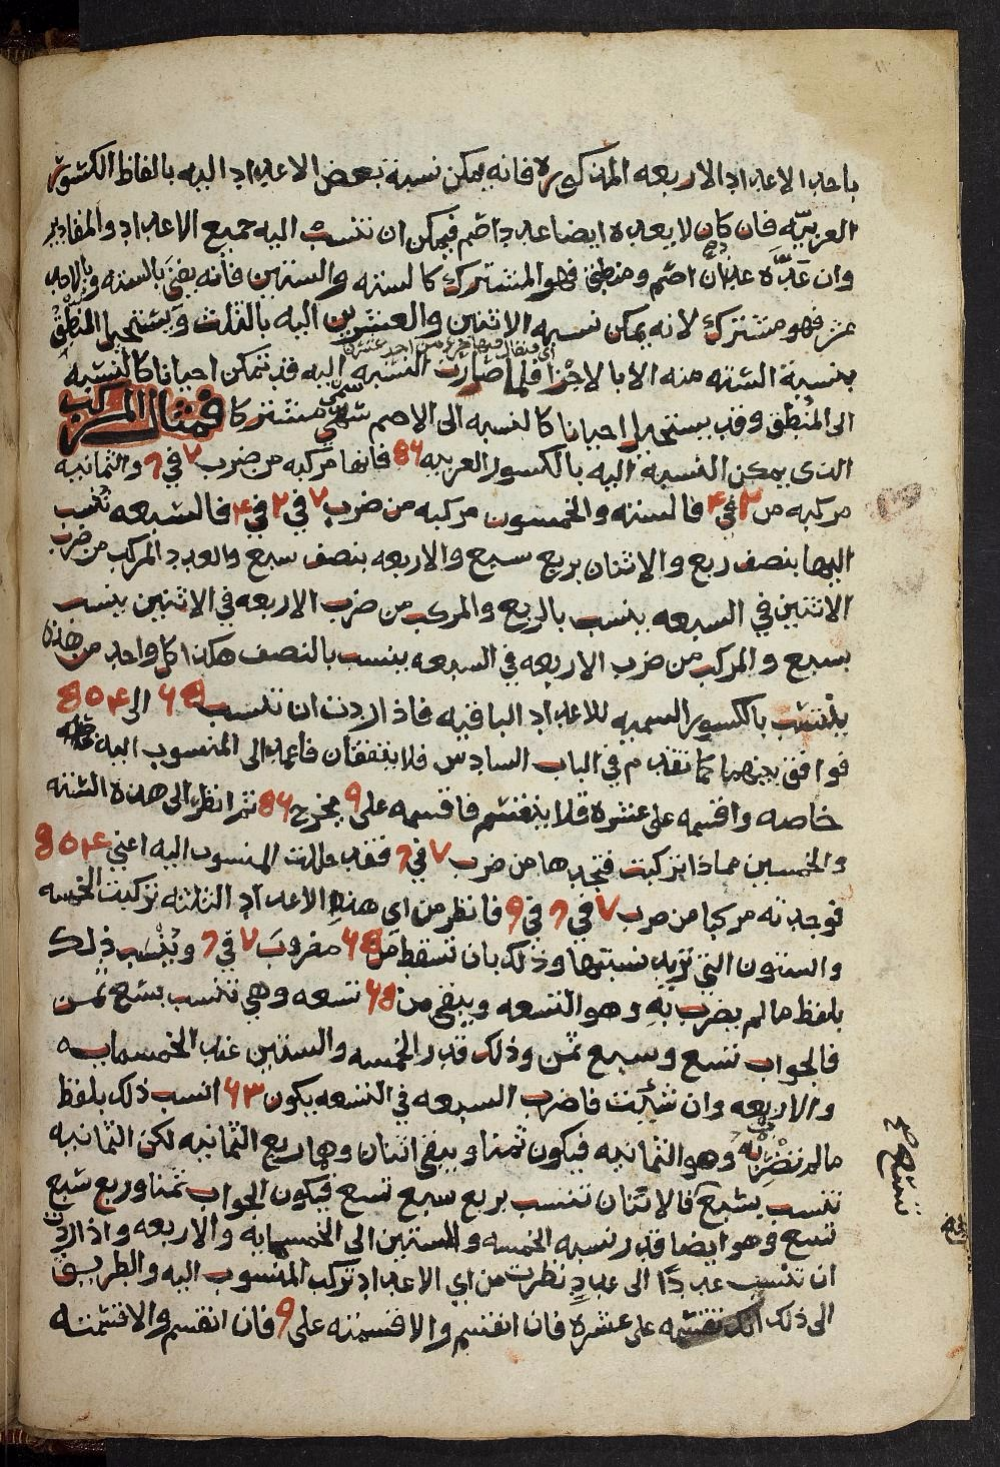 باحد الاعداد الاربعه المذكوره فانه يمكن نسبة بعض الاعداد اليه بالفاظ الكسور
العربيّه فان كان لا يعده ايضا عدد اصم فيمكن ان تنسب اليه جميع الاعداد والمقادير
وان عدّه عددان اصّم ومنطق فهو المشترك كالسته والستين فانه يفنى بالسته وبالاحد
عشر فهو مشترك لانه يمكن نسبة الاثنين والعشرين اليه بالثلث ويستحيل المنطق
بنسبة السته منه الا بالاجزا فلما صارت النسبه اليه قد تمكن احيانا كالنسبه
اي فيقال فيها جزء من احد عشر
الى المنطق وقد يستحيل احيانا كالنسبه الى الاصم سمي مشتركا فمثال المركب
الذى يمكن النسبة اليه بالكسور العربيه ٥٦ فانها مركبه من ضرب ٧ في ٨ والثمانيه
مركبه من ٢ في ۴ فالسته والخمسون مركبه من ضرب ٧ في ٢ في ۴ فالسبعه تنسب
اليها بنصف ربع والاثنان بربع سبع والاربعه بنصف سبع والعدد المركب من ضرب
الاثنين في السبعه ينسب بالربع والمركب من ضرب الاربعه في الاثنين ينسب
بسبع والمركب من ضرب الاربعه في السبعه ينسب بالنصف هكذا كل واحد من هذه
ينتسب بالكسور السميه للاعداد الباقيه فاذا اردت ان تنسب ٦٥ الى ٥٠۴
فوافق بينهما كما تقدم في الباب السادس فلا يتفقان فاعمد الى المنسوب اليه
خاصه واقسمه على عشرة فلا ينقسم فاقسمه على ٩ يخرج ٥٦ ثم انظر الى هذه السته
والخمسين مماذا تركبت فتجدها من ضرب ٧ في ٨ فقد حللت المنسوب اليه اعني ٥٠۴
فوجدته مركبا من ضرب ٧ في ٨ في ٩ فانظر من اي هذه الاعداد الثلثه تركبت الخمسه
والستون التي تريد نسبتها وذلك بان تسقط من ٦٥ مضروب ٧ في ٨ وينسب ذلك
بلفظ ما لم يضرب به وهو التسعه ويبقى من ٦٥ تسعه وهي تنتسب بسبع ثمن
فالجواب تسع وسبع ثمن وذلك قدر الخمسه والستين عند الخمسمايه
والاربعه وان شئت فاضرب السبعه في التسعه يكون ٦٣ انسب ذلك بلفظ
مالم تضربه وهو الثمانيه فيكون ثمنا ويبقى اثنان وهما ربع الثمانيه لكن الثمانيه
تنتسب بتسع فالاثنان تنتسب بربع سبع تسع فيكون الجواب ثمنا وربع سبع
تسع وهو ايضا قدر نسبه الخمسه والستين الى الخمسمايه والاربعه واذا اردت
ان تنسب عددًا الى عددٍ نظرت من اي الاعداد تركب المنسوب اليه والطريق
الى ذلك انك تقسمه على عشرة فان انقسم والا قسمته على ٩ فان انقسم والا قسمته